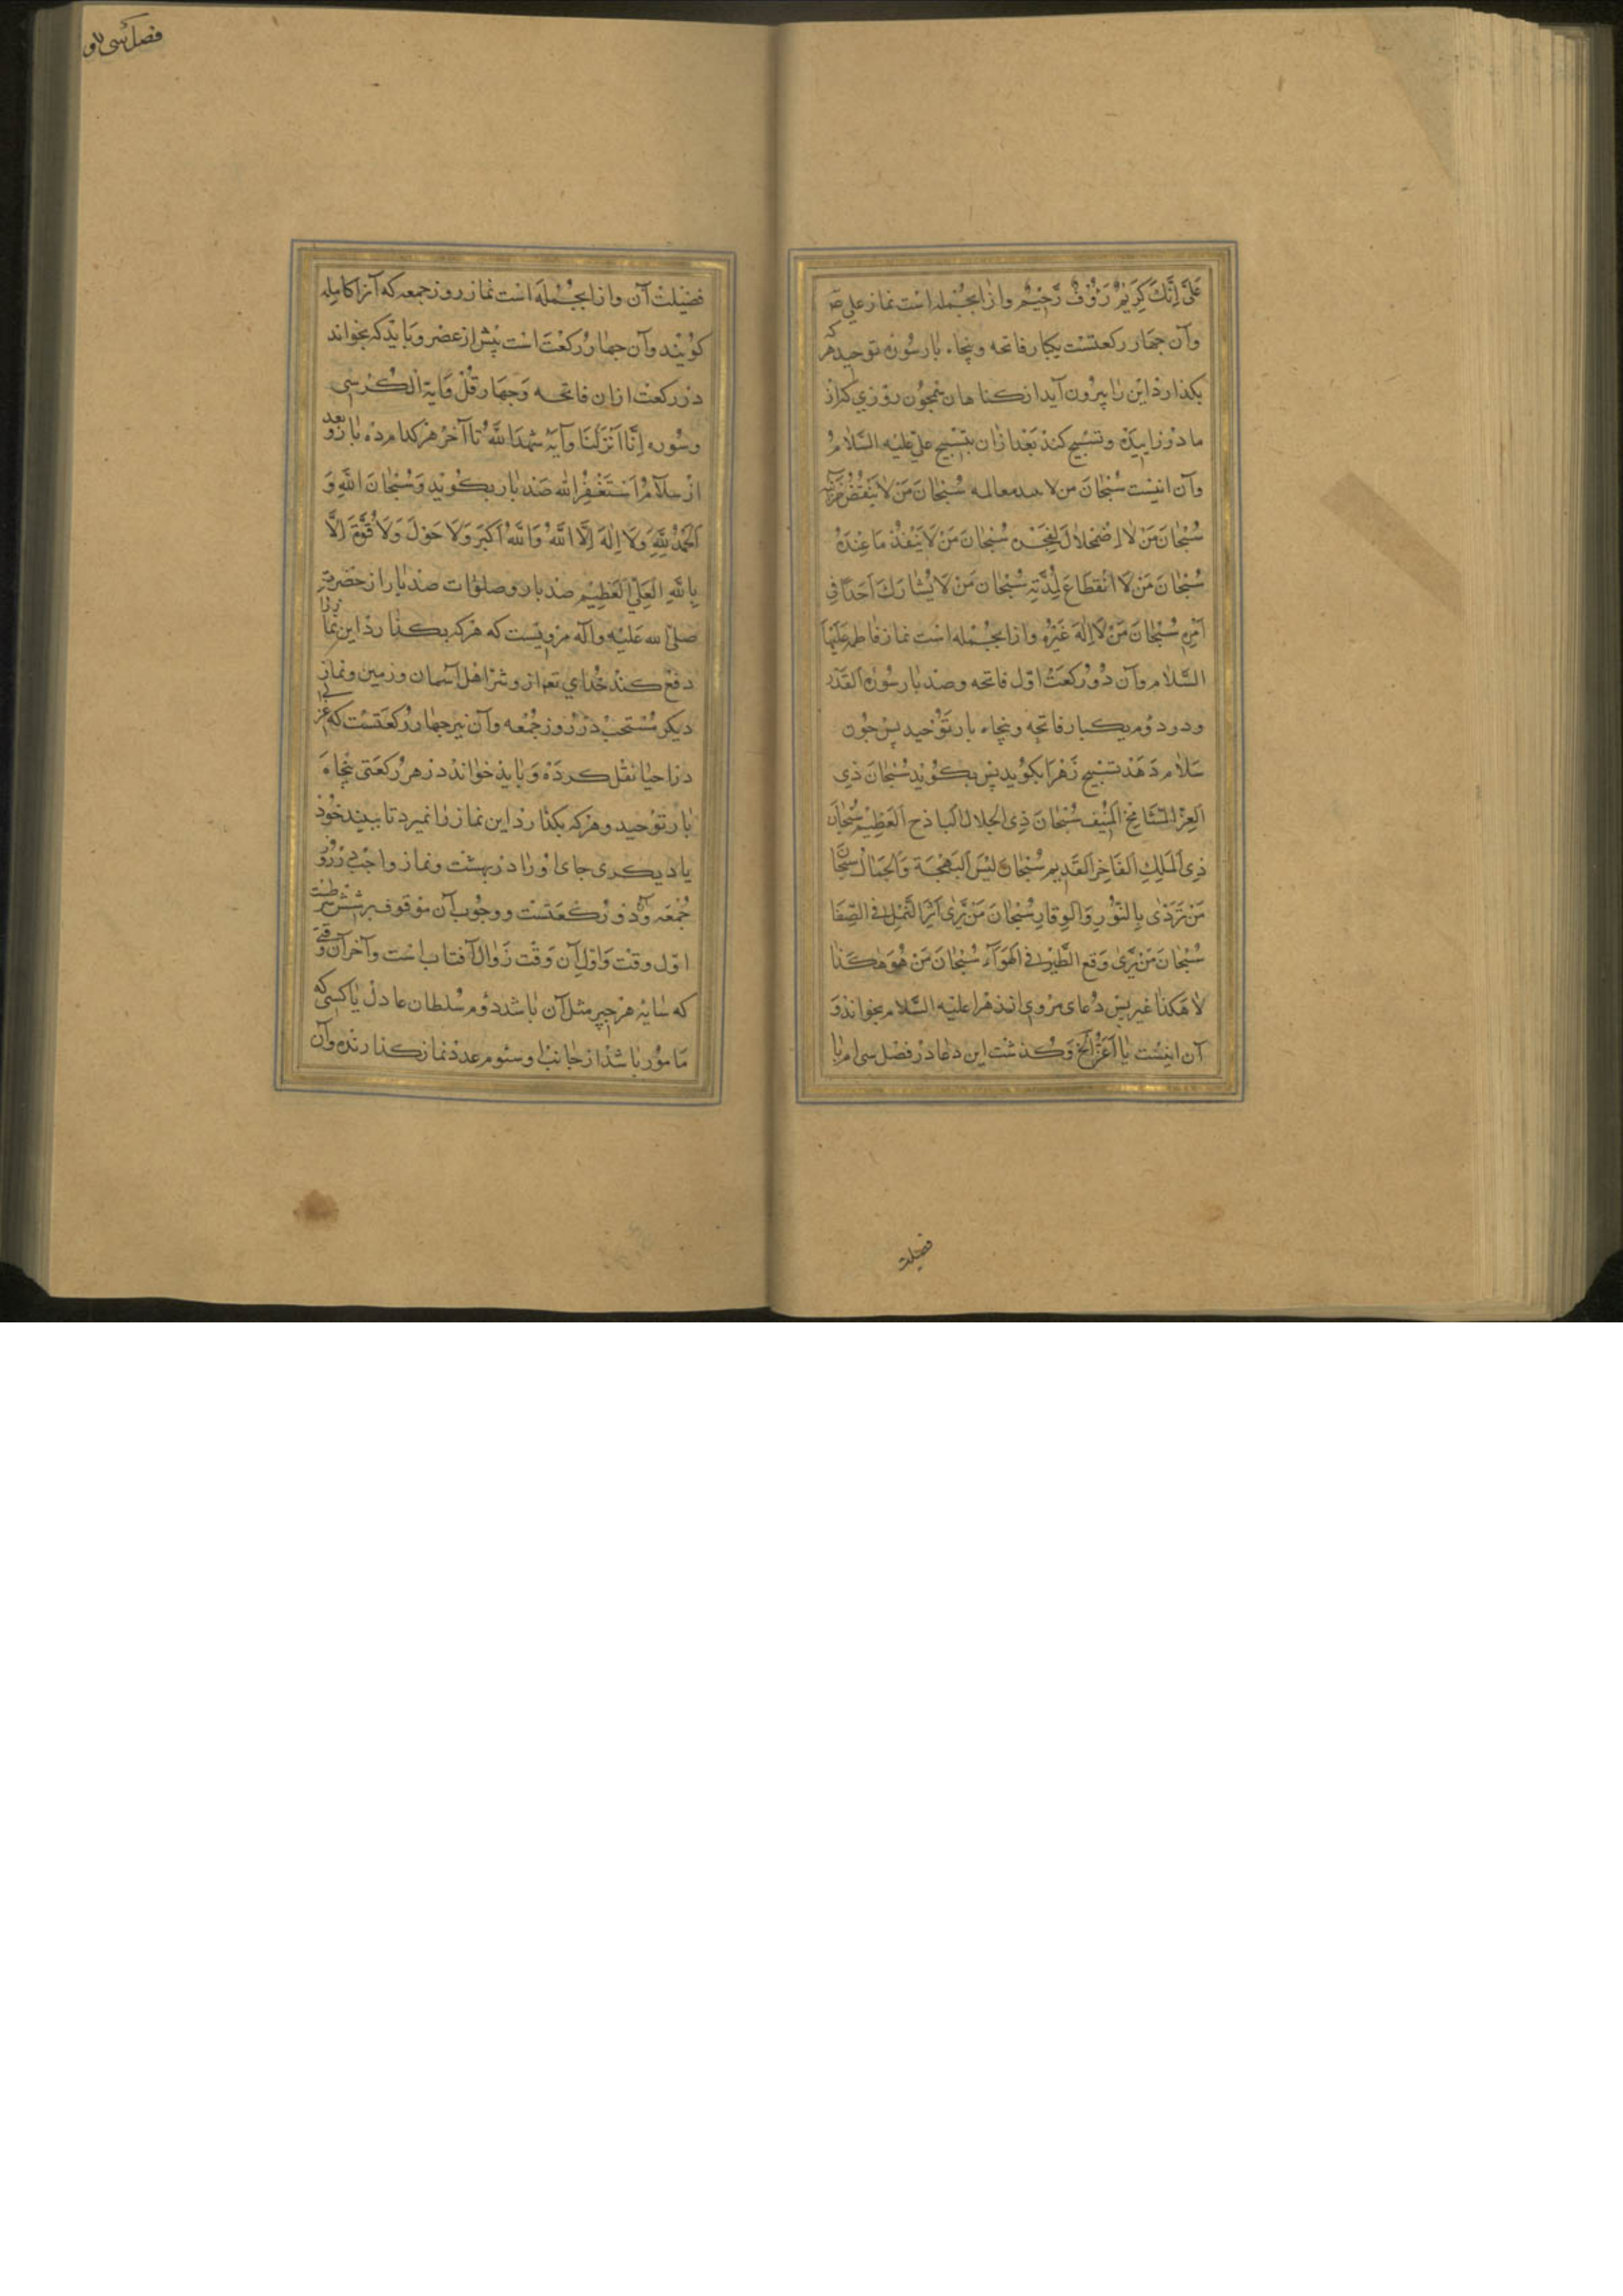 عَلَيَّ اِنَّكَ كَرِيمٌ رَؤُفٌ رَّحِيْمٌ واز انجُمله است نماز علي
وآن چهار ركعتست يكبار فاتحه وپنجاه بار سُوره توحيد هر كه
بكذارد اين را بيرون آيد از كناهان همچون روزي كه از
مادر زاييده وتسبيح كند بعد ازان بتسبيح علي عليه السّلامُ
وآن اينست سُبْحَانَ من لا معالمه سُبْحَانَ مَنْ لا يَنْقُصُ خزائنه
سُبْحَانَ مَنْ لا اِضْمِحلالَ لِفَخْرِه سُبْحَانَ مَنْ لا يَنْفَدُ مَا عِنْدَهُ
سُبْحَانَ مَنْ لَا انْقِطَاعَ لِمُدَّتِهِ سُبْحَانَ مَنْ لَا يُشَارِكُ اَحَدًا فِي
اَمْرِه سُبْحَانَ مَنْ لَا اِلٰهَ غَيْرُه واز انجُمله است نماز فاطمه عَلَيْهَا
السَّلام وآن دُو رُكعَتْ اوّل فاتحه وصد بار سُوره القَدْر
ودر دوُم يكبار فاتحه وپنجاه بار تَوْحيد پس چُون
سَلام دَهَد تسبيح زَهْرَا بكويد پس بكويد سُبْحَانَ ذِي
العِزِّ الشَّامِخِ المُنِيف سُبْحَانَ ذِي الجَلال الباذِخ العَظِيْم سُبْحَانَ
ذِي المُلكِ الفَاخِرِ القَدِيم سُبْحَانَ مَن لَبِسَ البَهْجَةَ وَالجَمَالَ سُبْحَانَ
مَنْ تَرَدّٰى بِالنُّورِ وَالوِقارِ سُبْحَانَ مَنْ يَرٰى اَثَرَ النَّمْلِ في الصَّفَا
سُبْحَانَ مَنْ يَرٰى وَقعَ الطَّيْرِ في الهَوَآءِ سُبْحَانَ مَنْ هُوَ هٰكَذَا
لا هَكذا غير پس دُعاى مروي از زهرا عليه السّلام بخواند وَ
آن اينست يَا اَعَزُّ الخ وَكذشت اين دعا در فصل سي ام با
فضيلت
فصل سى و
فضيلت آن واز انجُمله است نماز روز جمعه كه آنرا كامله
كويند وآن چهار رُكعَتْ است پيش از عصر وبايد كه بخواند
در ركعت ازان فاتحه وَچهار قُلْ وَاية الكرسي
وسُوره اِنَّا اَنْزَلْنَا وآيه شَهِدَ اللهُ تا آخر هر كدام دَه بار وبعد
از سلام اَسْتَغْفِرُ الله صَد بار بكويد وَسُبْحَانَ اللهِ وَ
اَلحَمْدُ لِلّٰهِ وَلَا اِلٰهَ اِلَّا اللهُ وَاللهُ اَكبَر وَلَا حَوْلَ وَلَا قُوَّةَ اِلَّا
بِاللهِ العَلِيِّ العَظِيْم صَد بار وصلوات صد بار از حضرت
صلى الله عَليْهِ وآله مرويست كه هركه بكذارد اين نماز را
دفع كند خُداي تعه از و شر اهل آسمان وزمين ونماز
ديكر مُسْتحب در روز جُمْعه وآن نيز چهار رُكعَتست كه
در احيا نقل كرده وَبايد خواند در هر ركعتى پنجاه
بار توحيد وهركه بكذارد اين نماز را نميرد تا ببيند خود
يا ديكرى جاى او را در بهشت ونماز واجبى در روز
جُمْعَه وآن دو رُكعَتست ووجُوب آن موقوف بر شش شرطست
اوّل وقت وَاوّلِ آن وَقت زَوالِ آفتاب است وآخر آن وقتي
كه سَايه هر چيز مثل آن باشد دوُم سُلطان عادل يا كسى كه
مَامُور باشد از جانب او وسيُوم عدد نماز كذارنده وآن